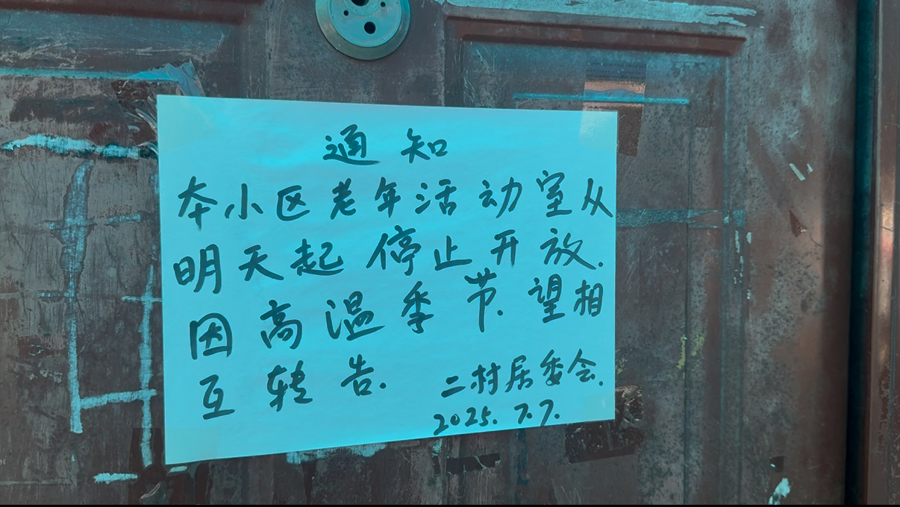 通知
本小区老年活动室从
明天起停止开放.
因高温季节.望相
互转告.
二村居委会.
2025.7.7.